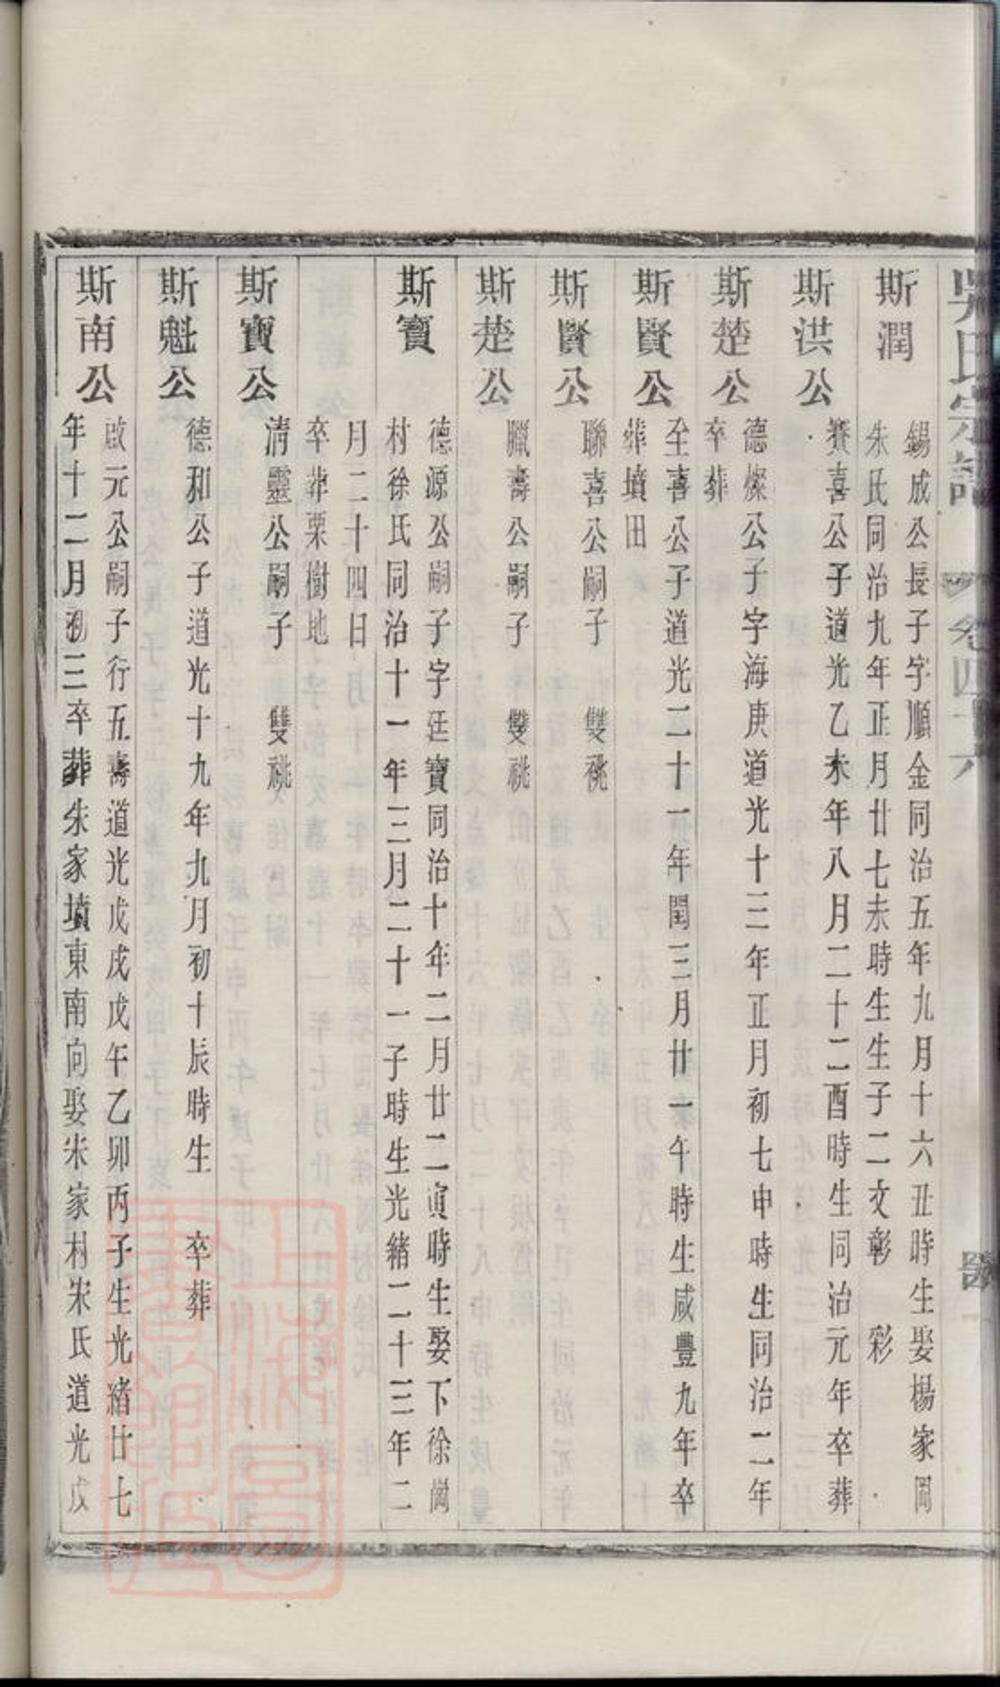 吳氏宗譜 卷四十六
斯潤
錫成公長子字順金同治五年九月十六丑時生娶楊家岡
朱氏同治九年正月廿七未時生生子二文彰 彩
斯洪公
賽喜公子道光乙未年八月二十二酉時生同治元年卒葬
斯楚公
德燦公子字海庚道光十三年正月初七申時生同治二年
卒葬
斯賢公
至喜公子道光二十一年閏三月廿一午時生咸豐九年卒
葬墳田
斯賢公
聯喜公嗣子 雙祧
斯楚公
臘壽公嗣子 雙祧
斯寶
德源公嗣子字廷寶同治十年二月廿二寅時生娶下徐崗
村徐氏同治十一年三月二十一子時生光緒二十三年二
月二十四日
卒葬栗樹地
斯寶公
清靈公嗣子 雙祧
斯魁公
德和公子道光十九年九月初十辰時生 卒葬
斯南公
啟元公嗣子行五壽道光戊戌戊午乙卯丙子生光緒廿七
年十二月初三卒葬朱家墳東南向娶朱家村宋氏道光戊